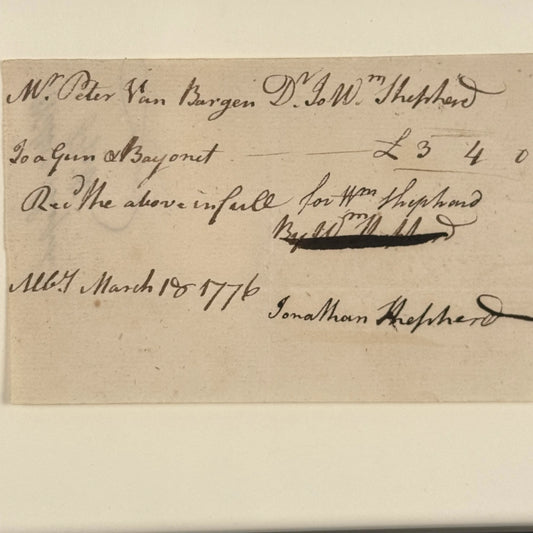 Mr. Peter Van Bargen Dr. To Wm. Shepherd
To a Gun & Bayonet — £3 4 0
Recd the above in full for Wm Shephard
By Wm Shepherd
Alby March 18 1776
Jonathan Shepherd